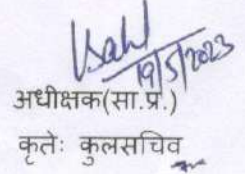 19/5/2023
अधीक्षक(सा.प्र.)
कृतेः कुलसचिव